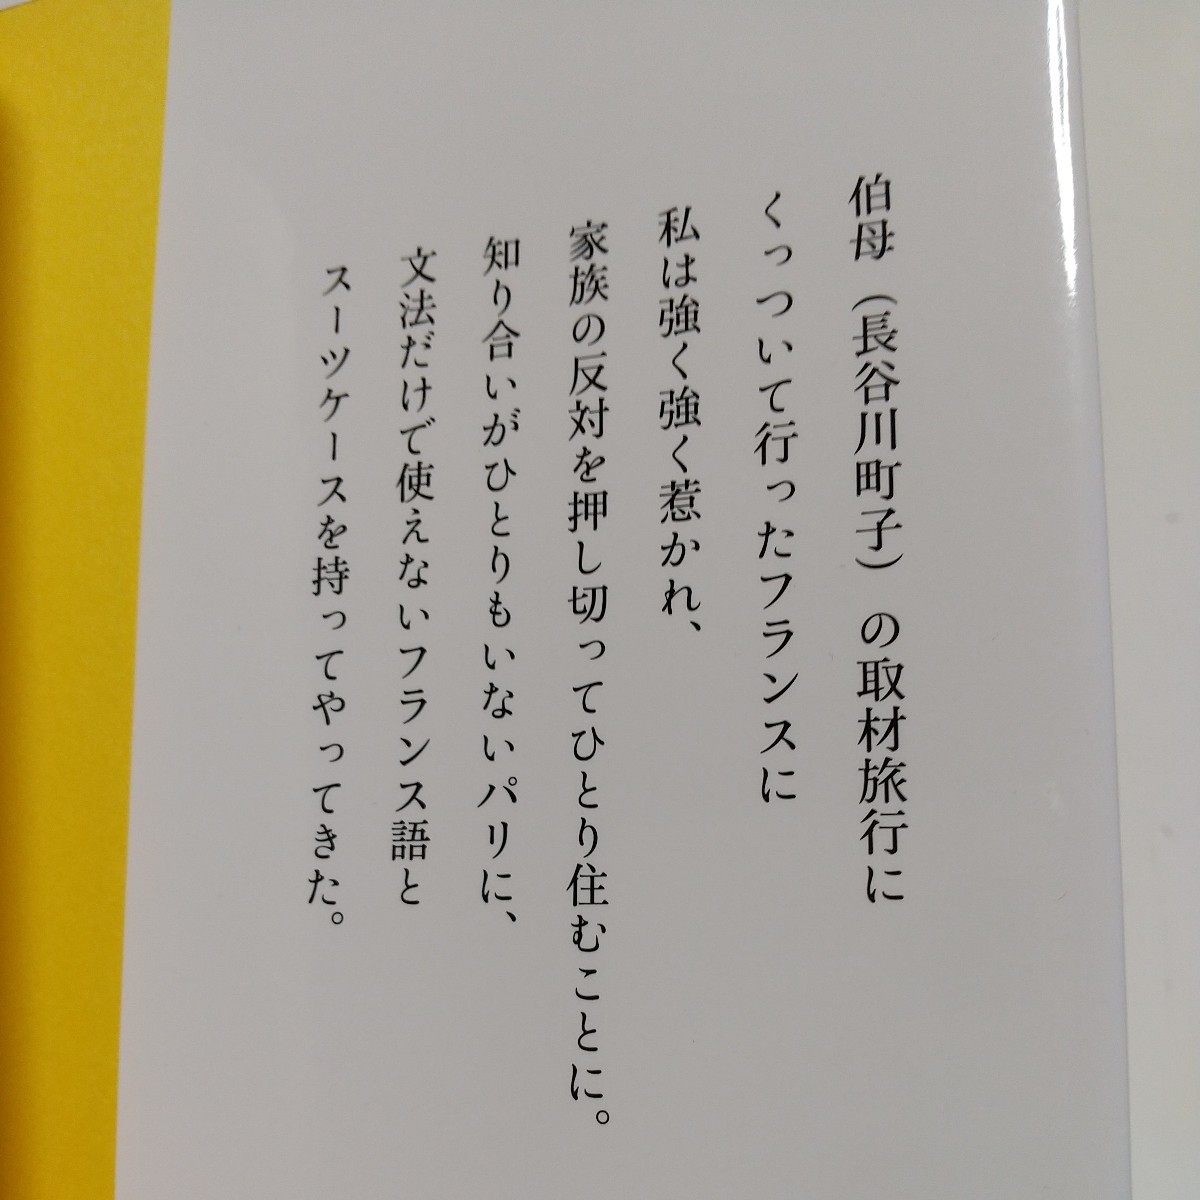 伯母（長谷川町子）の取材旅行に
くっついて行ったフランスに
私は強く強く惹かれ、
家族の反対を押し切ってひとり住むことに。
知り合いがひとりもいないパリに、
文法だけで使えないフランス語と
スーツケースを持ってやってきた。